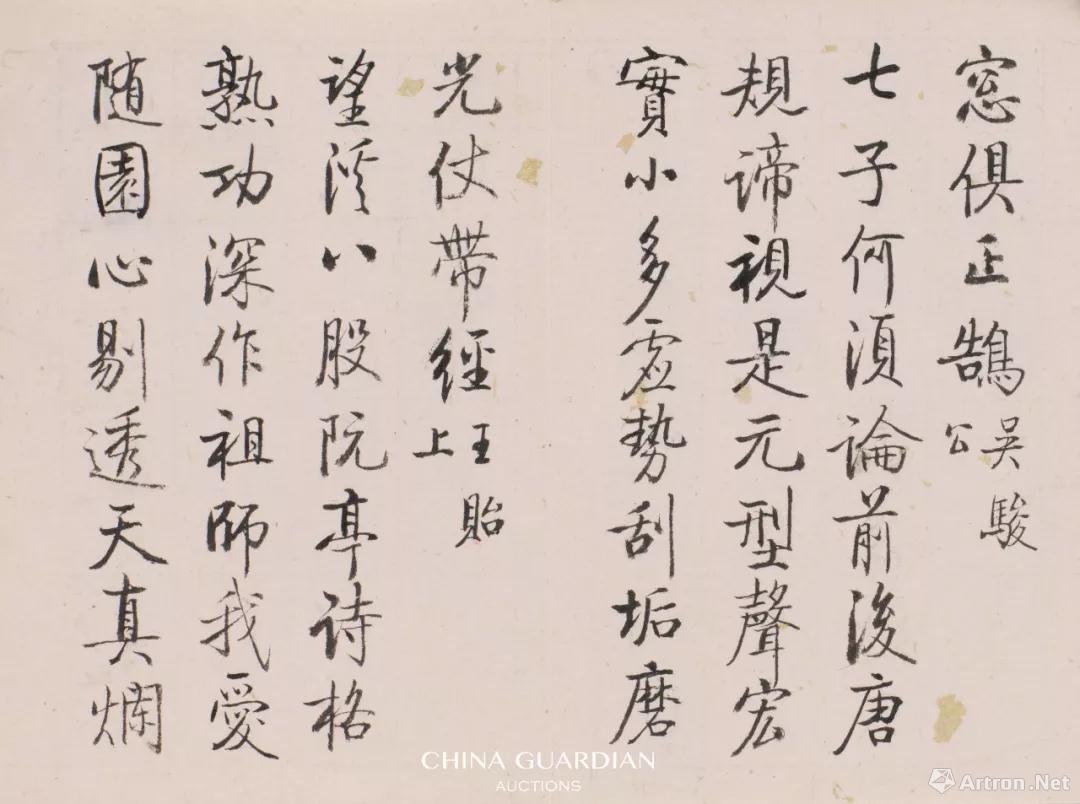 窓俱正鵠吳駿公
七子何須論前後唐
規諦視是元型聲宏
實小多虛勢刮垢磨
光仗帶經王貽上
望溪八股阮亭诗格
熟功深作祖師我愛
随園心剔透天真爛
CHINA GUARDIAN
AUCTIONS
Artron.Net